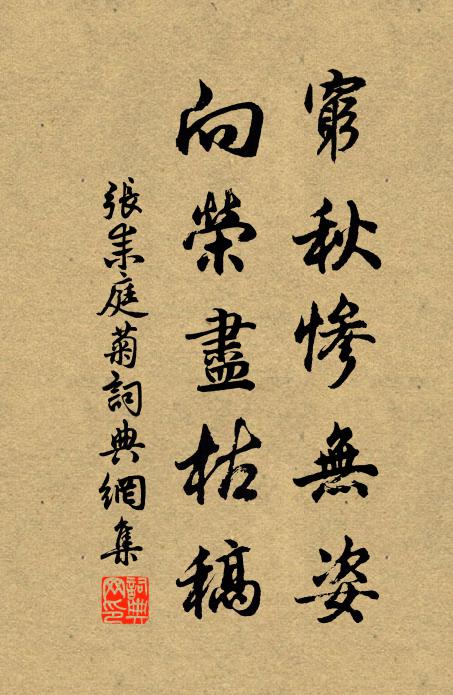 窮秋慘無姿
向榮盡枯稿
張耒庭菊詞典網集
詞典網印